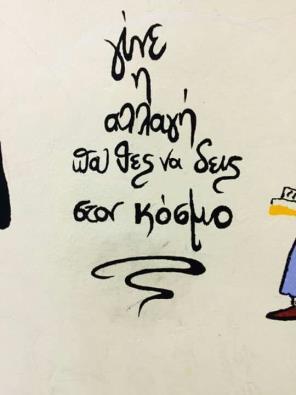 γίνε
η
αλλαγή
που θες να δεις
στον κόσμο